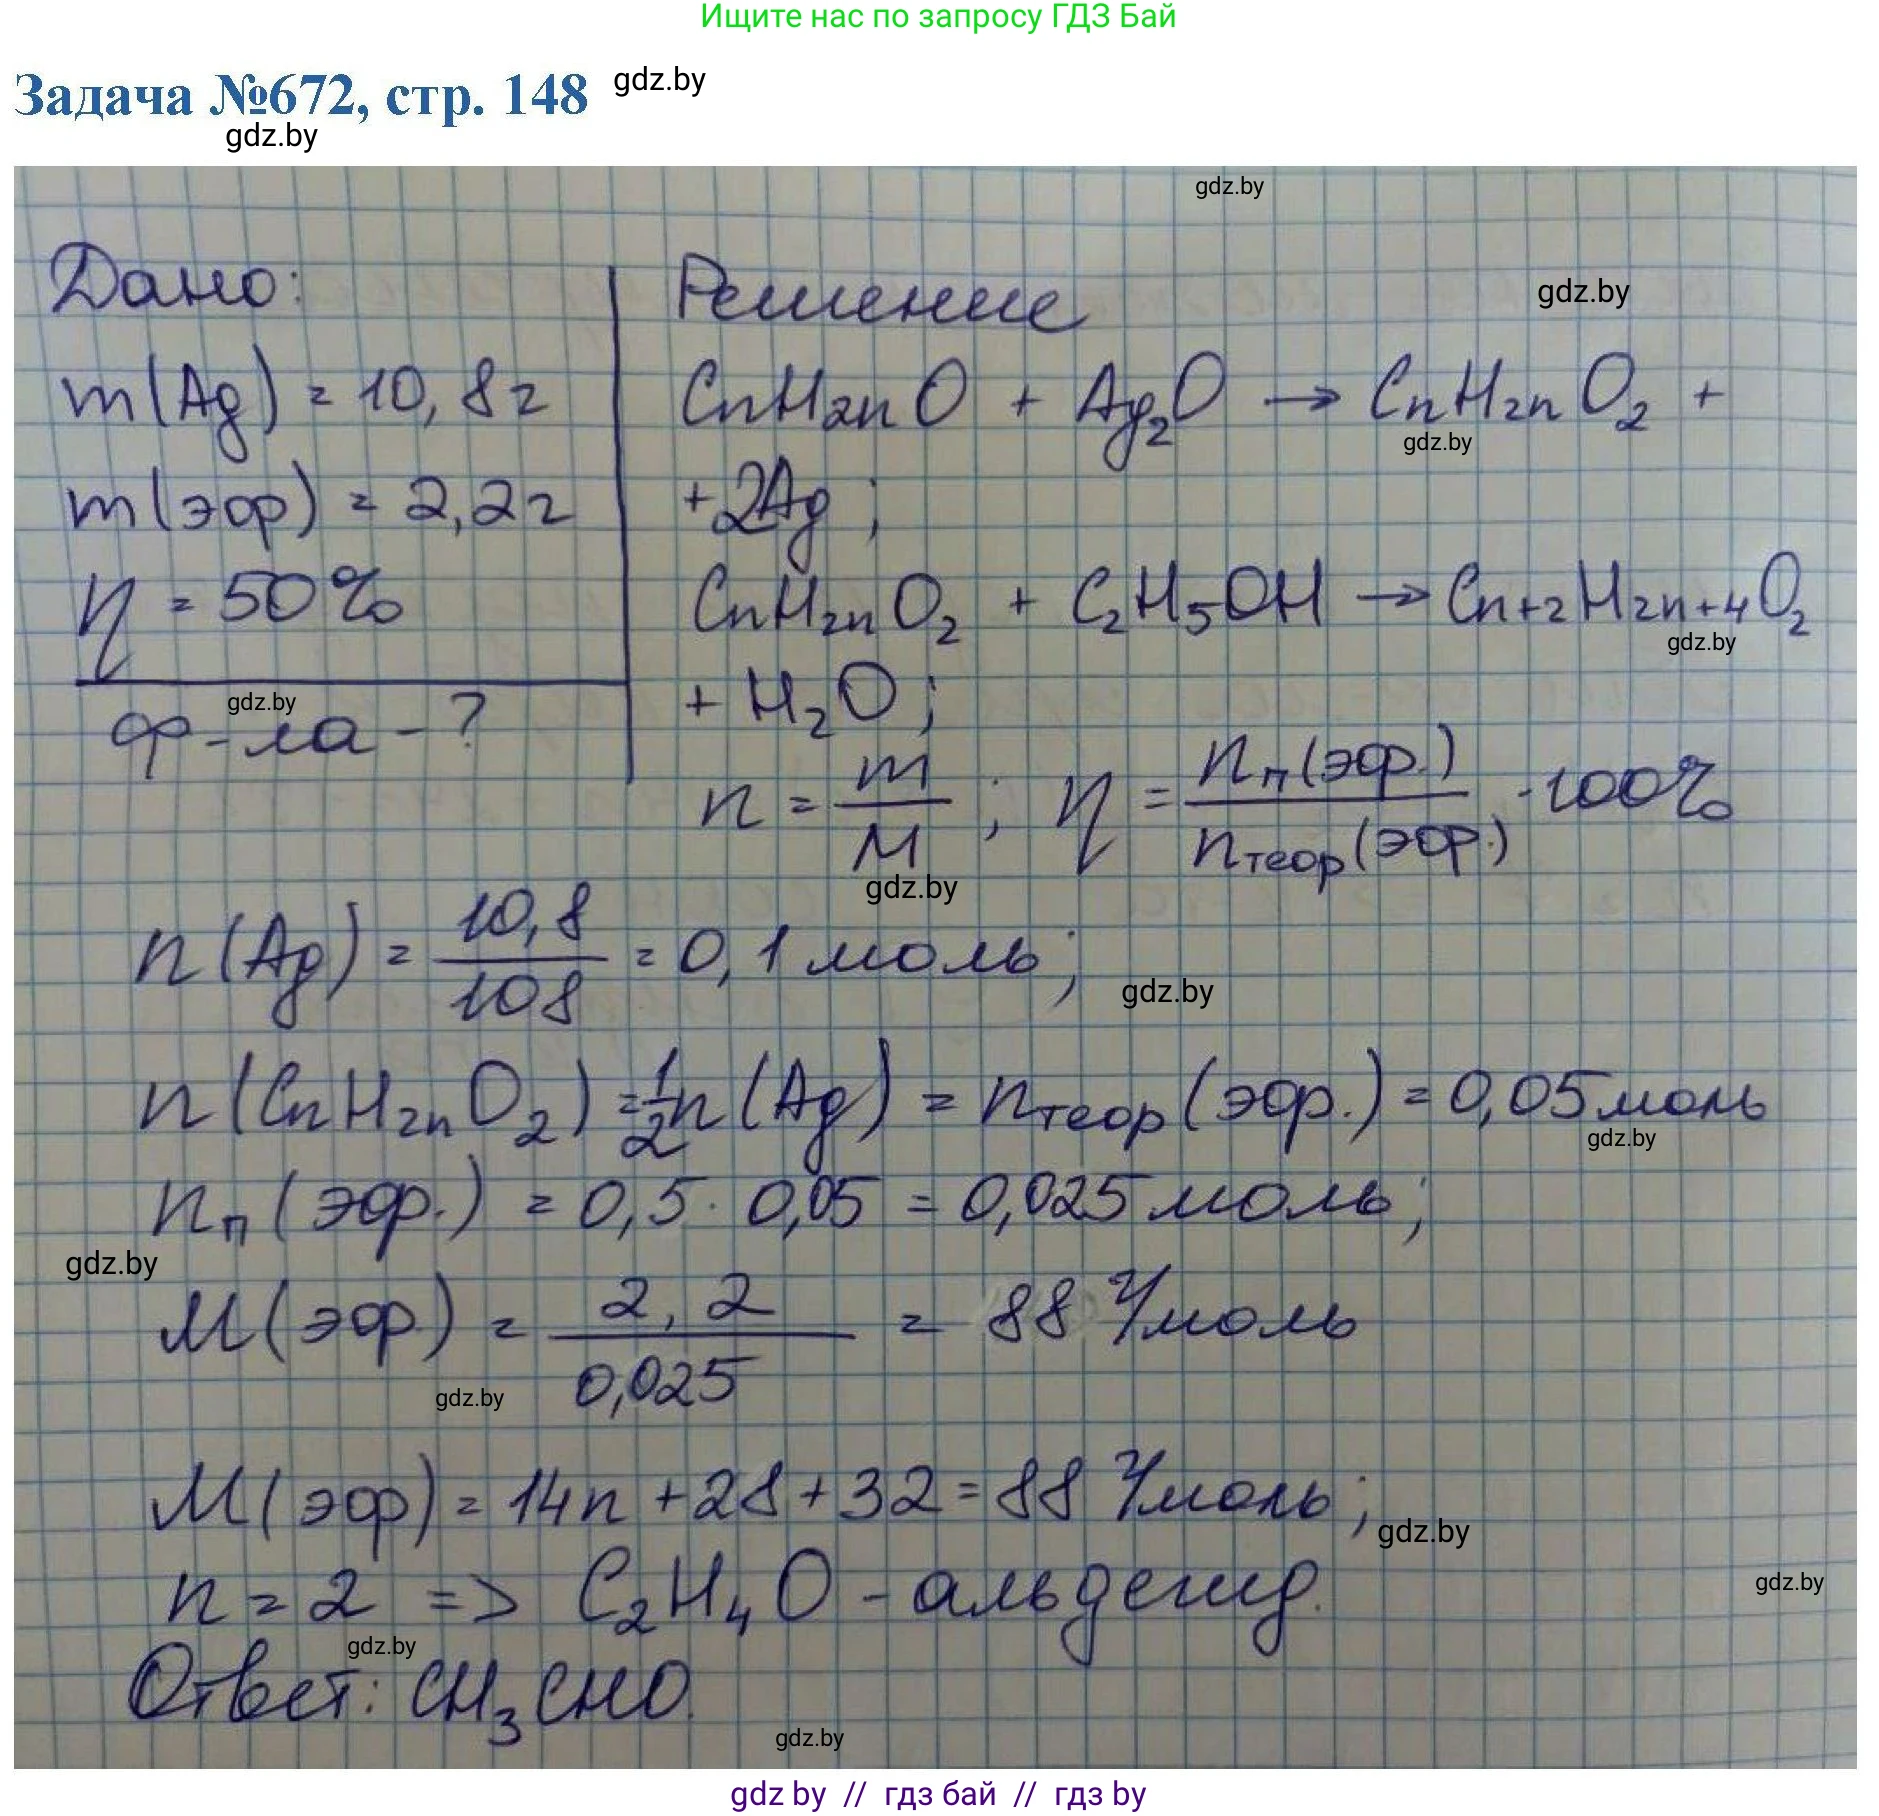 Ищите нас по запросу ГДЗ Бай
Задача №672, стр. 148 gdz.by
gdz.by
gdz.by
Дано:
m(Ag) = 10,8г
m(эфр) = 2,2г
η = 50%
gdz.by
ф-ла - ?
Решение
gdz.by
CnH2nO + Ag2O → CnH2nO2 +
gdz.by
+2Ag;
CnH2nO2 + C2H5OH → Cn+2H2n+4O2
gdz.by
+ H2O;
n = m/M; η = nп(эфр.)/nтеор(эфр.) · 100%
gdz.by
n(Ag) = 10,8/108 = 0,1 моль;
gdz.by
n(CnH2nO2) = 1/2 n(Ag) = nтеор(эфр.) = 0,05 моль
gdz.by
nп(эфр.) = 0,5 · 0,05 = 0,025 моль;
gdz.by
M(эфр.) = 2,2/0,025 = 88 г/моль
gdz.by
M(эфр) = 14n + 28 + 32 = 88 г/моль;
gdz.by
n = 2 => C2H4O - альдегид.
gdz.by
gdz.by
Ответ: CH3CHO.
gdz.by
gdz by // гдз бай // гдз by